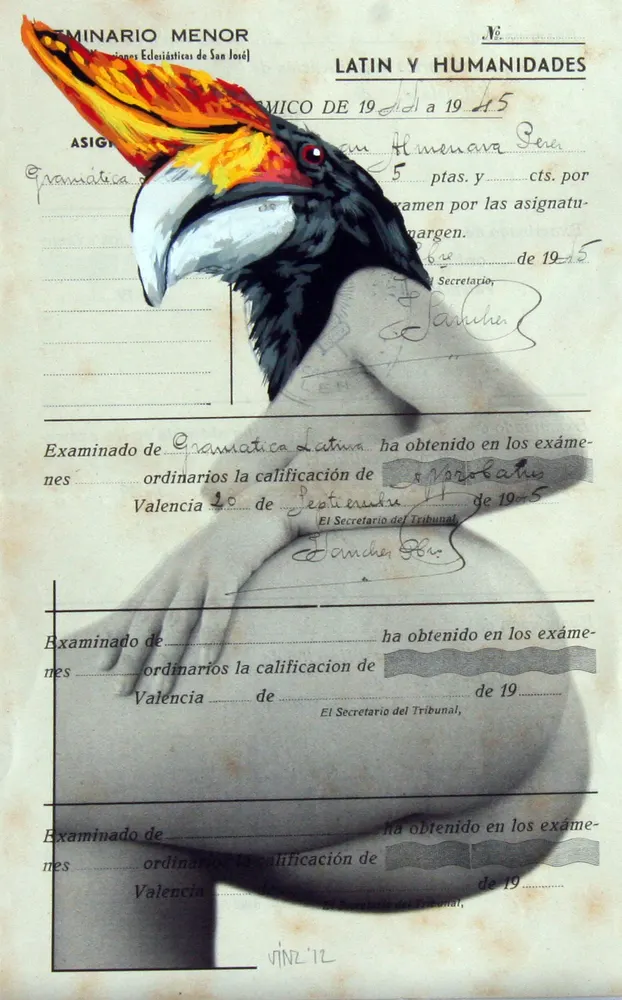 MINARIO MENOR
Nº
iones Eclesiásticas de San José)
LATIN Y HUMANIDADES
MICO DE 19 a 19 45
ASIG
Almenara Perez
Gramática
5 ptas. y cts. por
xamen por las asignatu-
margen.
bre de 1945
l Secretario,
Sanches
Examinado de Gramatica Latina ha obtenido en los exáme-
nes ordinarios la calificación de Approbatus
Valencia 20 de Septiembre de 1945
El Secretario del Tribunal,
Sanches Pbro
Examinado de ha obtenido en los exáme-
nes ordinarios la calificacion de
Valencia de de 19
El Secretario del Tribunal,
Examinado de ha obtenido en los exáme-
nes ordinarios la calificación de
Valencia de de 19
El Secretario del Tribunal,
VINZ '12